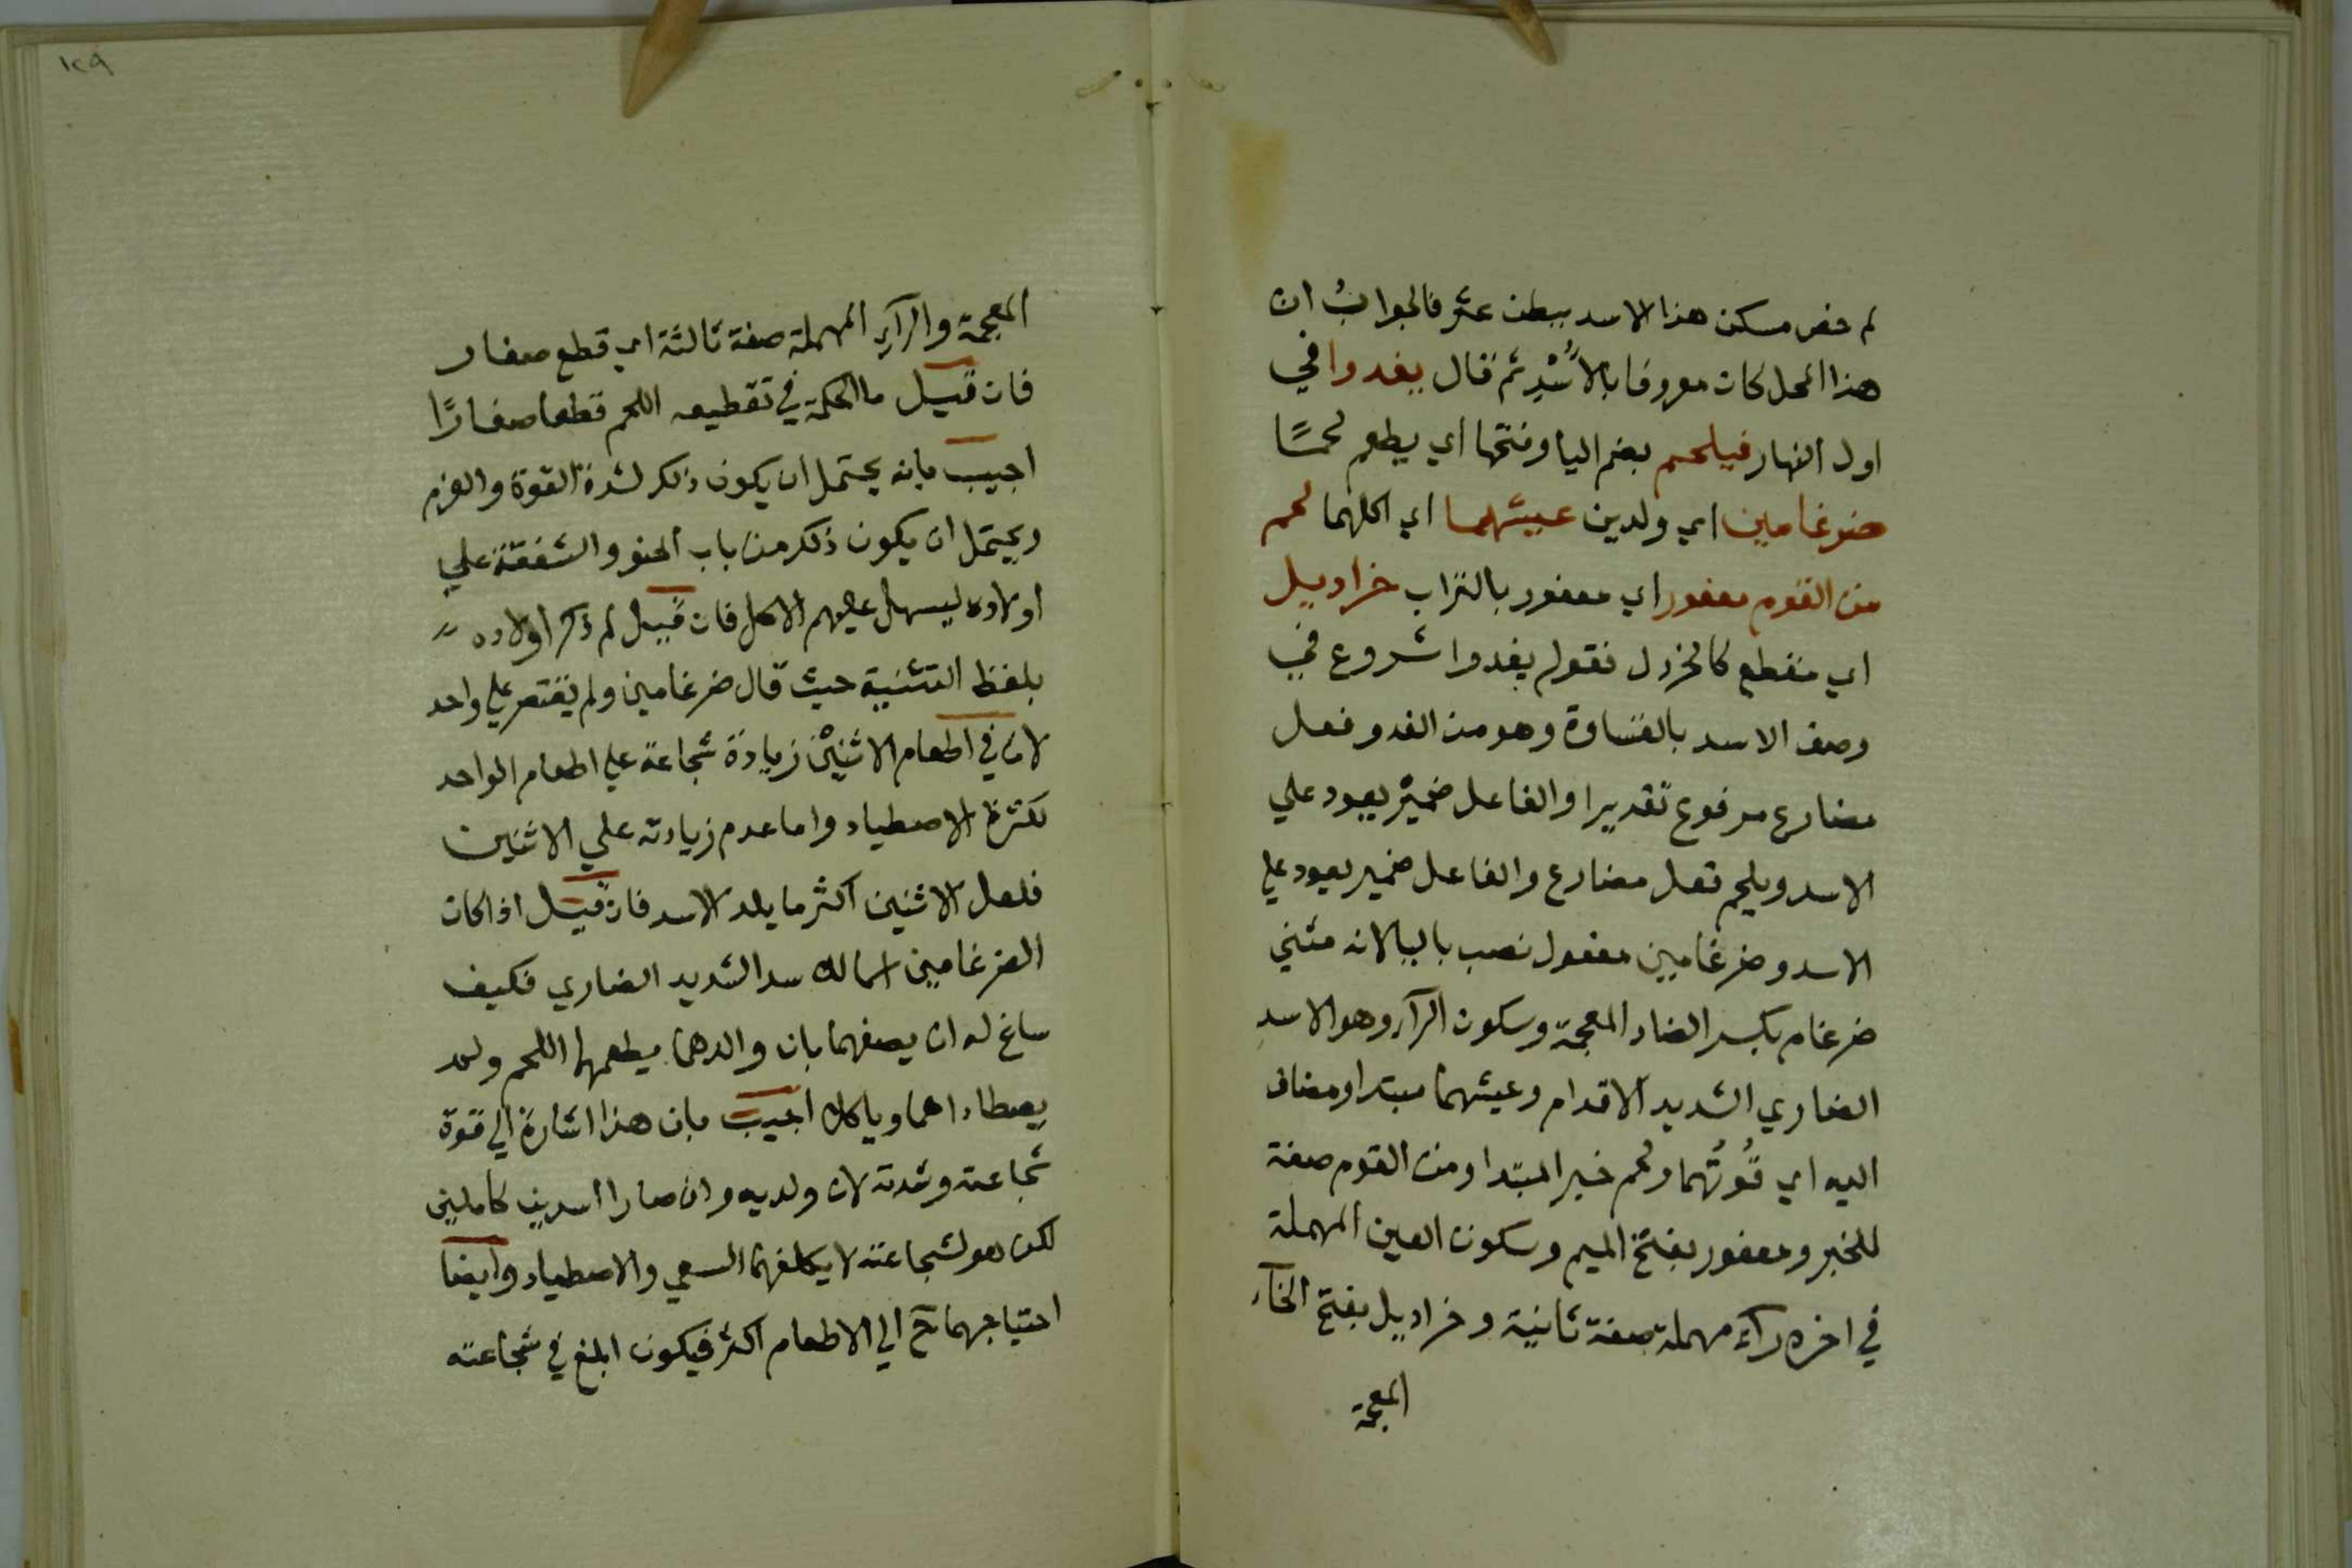 لم خص مسكن هذا الاسد ببطن عثر فالجوابُ ان
هذا المحل كان معروفا بالأُسْدِ ثم قال يغدوا في
اول النهار فيلحم بضم اليا وفتحها اي يطعم لحمًا
ضرغامين اي ولدين عيشهما اي اكلهما لحم
من القوم معفور اي معفور بالتراب خراديل
اي منقطع كالخردل فقوله يغدوا شروع في
وصف الاسد بالقساوة وهو من الغدو فعل
مضارع مرفوع تقديرا والفاعل ضمير يعود علي
الاسد ويلحم فعل مضارع والفاعل ضمير يعود علي
الاسد وضرغامين مفعول نصب باليا لانه مثني
ضرغام بكسر الضاد المعجمة وسكون الرآء وهو الاسد
الضاري الشديد الاقدام وعيشهما مبتدا ومضاف
اليه اي قُوتُهما ولحم خبر المبتدا ومن القوم صفة
للخبر ومعفور بفتح الميم وسكون العين المهملة
في اخره رآء مهملة صفة ثانية وخراديل بفتح الخآء
المعجمة
١٢٩
المعجمة والرآء المهملة صفة ثالثة اي قطع صغار
فان قيل ما الحكمة في تقطيعه اللحم قطعا صغارًا
اجيب بانه يحتمل ان يكون ذلك لشدة القوة والعزم
ويحتمل ان يكون ذلك من باب الحنو والشفقة علي
اولاده ليسهل عليهم الاكل فان قيل لم ذكر اولاده
بلفظ التثنية حيث قال ضرغامين ولم يقتصر علي واحد
لان في اطعام الاثنين زيادة شجاعة علي اطعام الواحد
لكثرة الاصطياد واما عدم زيادته علي الاثنين
فلعل الاثنين اكثر ما يلد الاسد فان قيل اذا كان
الضرغامين اسما للاسد الشديد الضاري فكيف
ساغ له ان يصفهما بان والدهما يطعمهما اللحم ولم
يصطادا هما وياكلا اجيب بان هذا اشارة الي قوة
شجاعته وشدته لان ولديه وان صارا اسدين كاملين
لكن هو لشجاعته لا يكلفهما السعي والاصطياد وايضا
احتياجهما ح الي الاطعام اكثر فيكون ابلغ في شجاعته